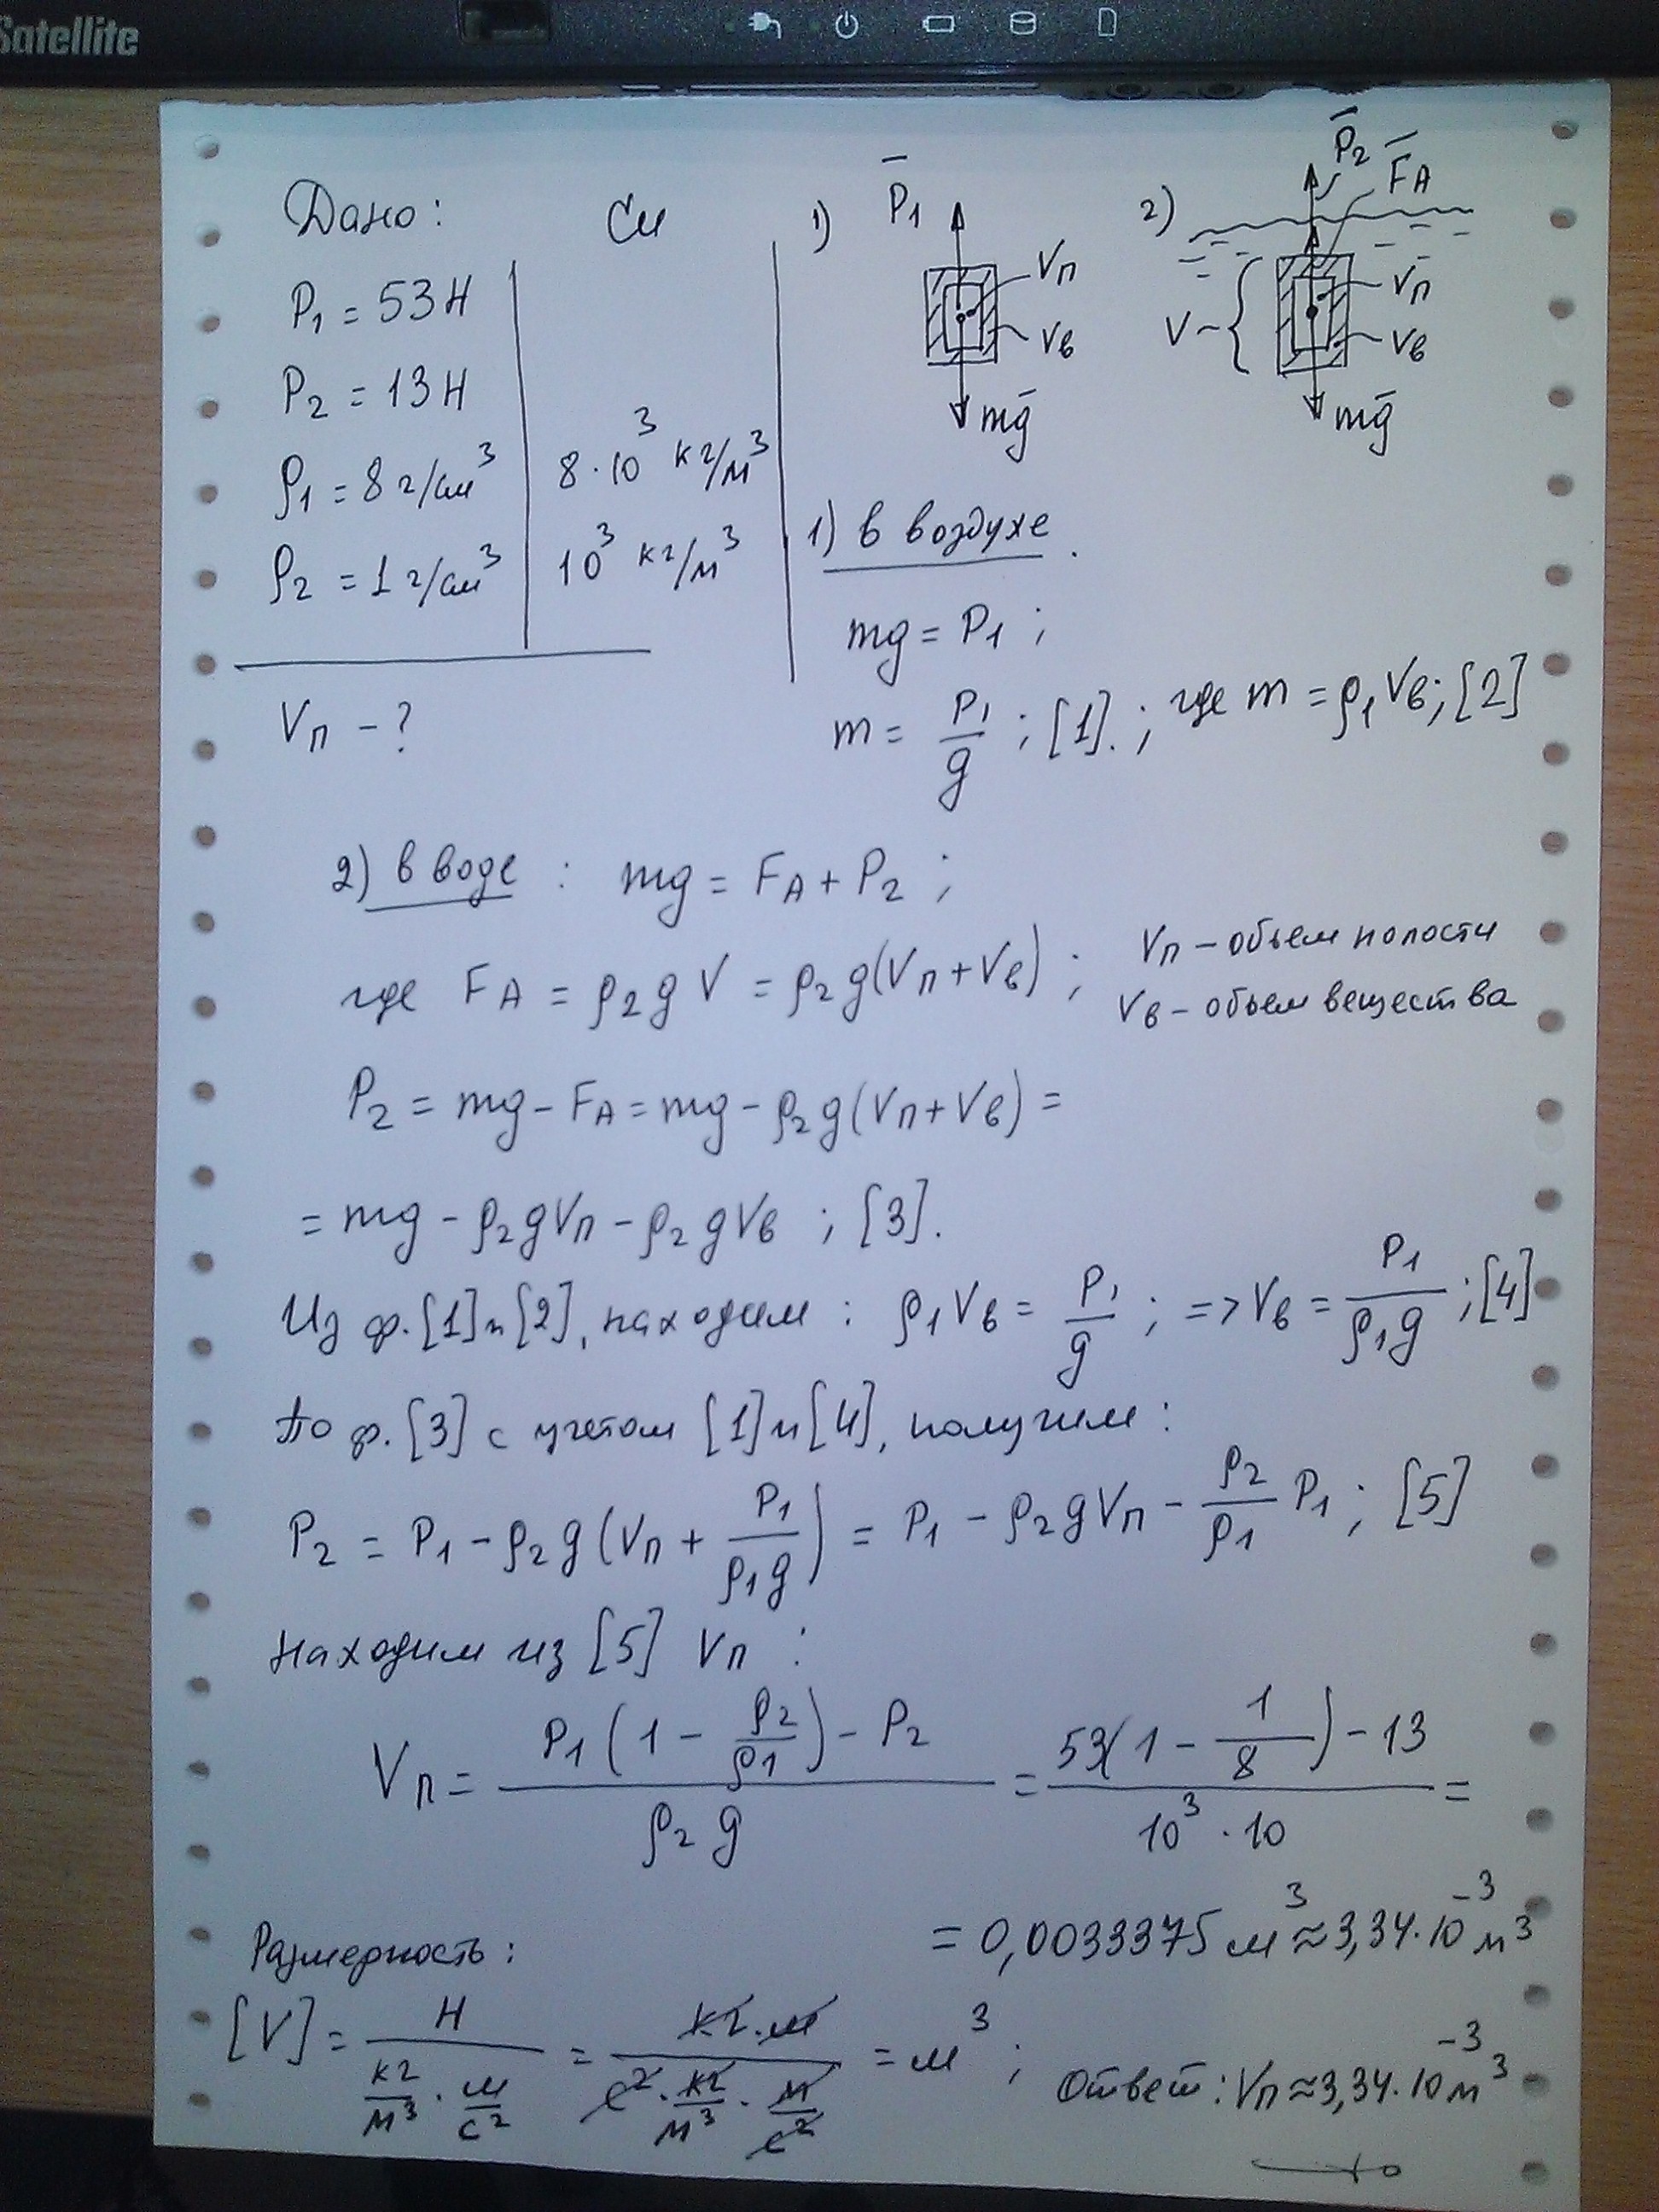 Satellite
Дано:
Си
P₁ = 53 Н
P₂ = 13 Н
ρ₁ = 8 г/см³
8·10³ кг/м³
ρ₂ = 1 г/см³
10³ кг/м³
Vп - ?
1)
P̄₁
Vп
Vв
mḡ
2)
P̄₂
F̄A
V
Vп
Vв
mḡ
1) в воздухе.
mg = P₁ ;
m = P₁/g ; [1]. ; где m = ρ₁Vв; [2]
2) в воде : mg = FA + P₂ ;
где FA = ρ₂gV = ρ₂g(Vп+Vв) ;
Vп – обьем полости
Vв – обьем вещества
P₂ = mg – FA = mg – ρ₂g(Vп+Vв) =
= mg – ρ₂gVп – ρ₂gVв ; [3].
Из ф. [1] и [2], находим : ρ₁Vв = P₁/g ; => Vв = P₁/(ρ₁g) ; [4]
По ф. [3] с учетом [1] и [4], получим :
P₂ = P₁ – ρ₂g(Vп + P₁/(ρ₁g)) = P₁ – ρ₂gVп – ρ₂/ρ₁ P₁ ; [5]
Находим из [5] Vп :
Vп = (P₁(1 – ρ₂/ρ₁) – P₂)/(ρ₂g) = (53(1 – 1/8) – 13)/(10³·10) =
= 0,0033375 м³ ≈ 3,34·10⁻³ м³
Размерность :
[V] = Н/(кг/м³ · м/с²) = кг·м/(с² · кг/м³ · м/с²) = м³ ;
Ответ : Vп ≈ 3,34·10⁻³ м³